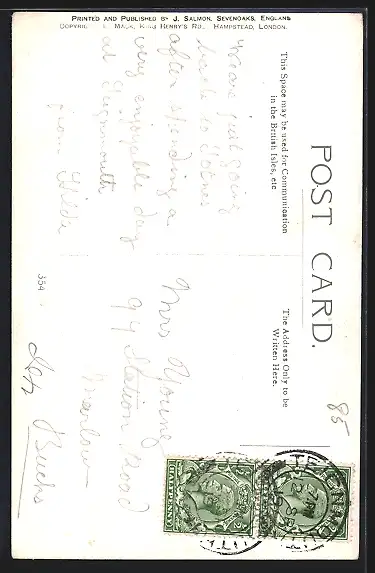 PRINTED AND PUBLISHED BY J. SALMON, SEVENOAKS, ENGLAND
HENRY'S RD. HAMPSTEAD, LONDON.
POST CARD.
This Space may be used for Communication
in the British Isles, etc
The Address Only to be
Written Here.
We are just going
back to
after spending a
very enjoyable day
at Teignmouth
from Hilda
354
Mrs Young
94 Station Road
Marlow
Bucks
85
HALFPENNY